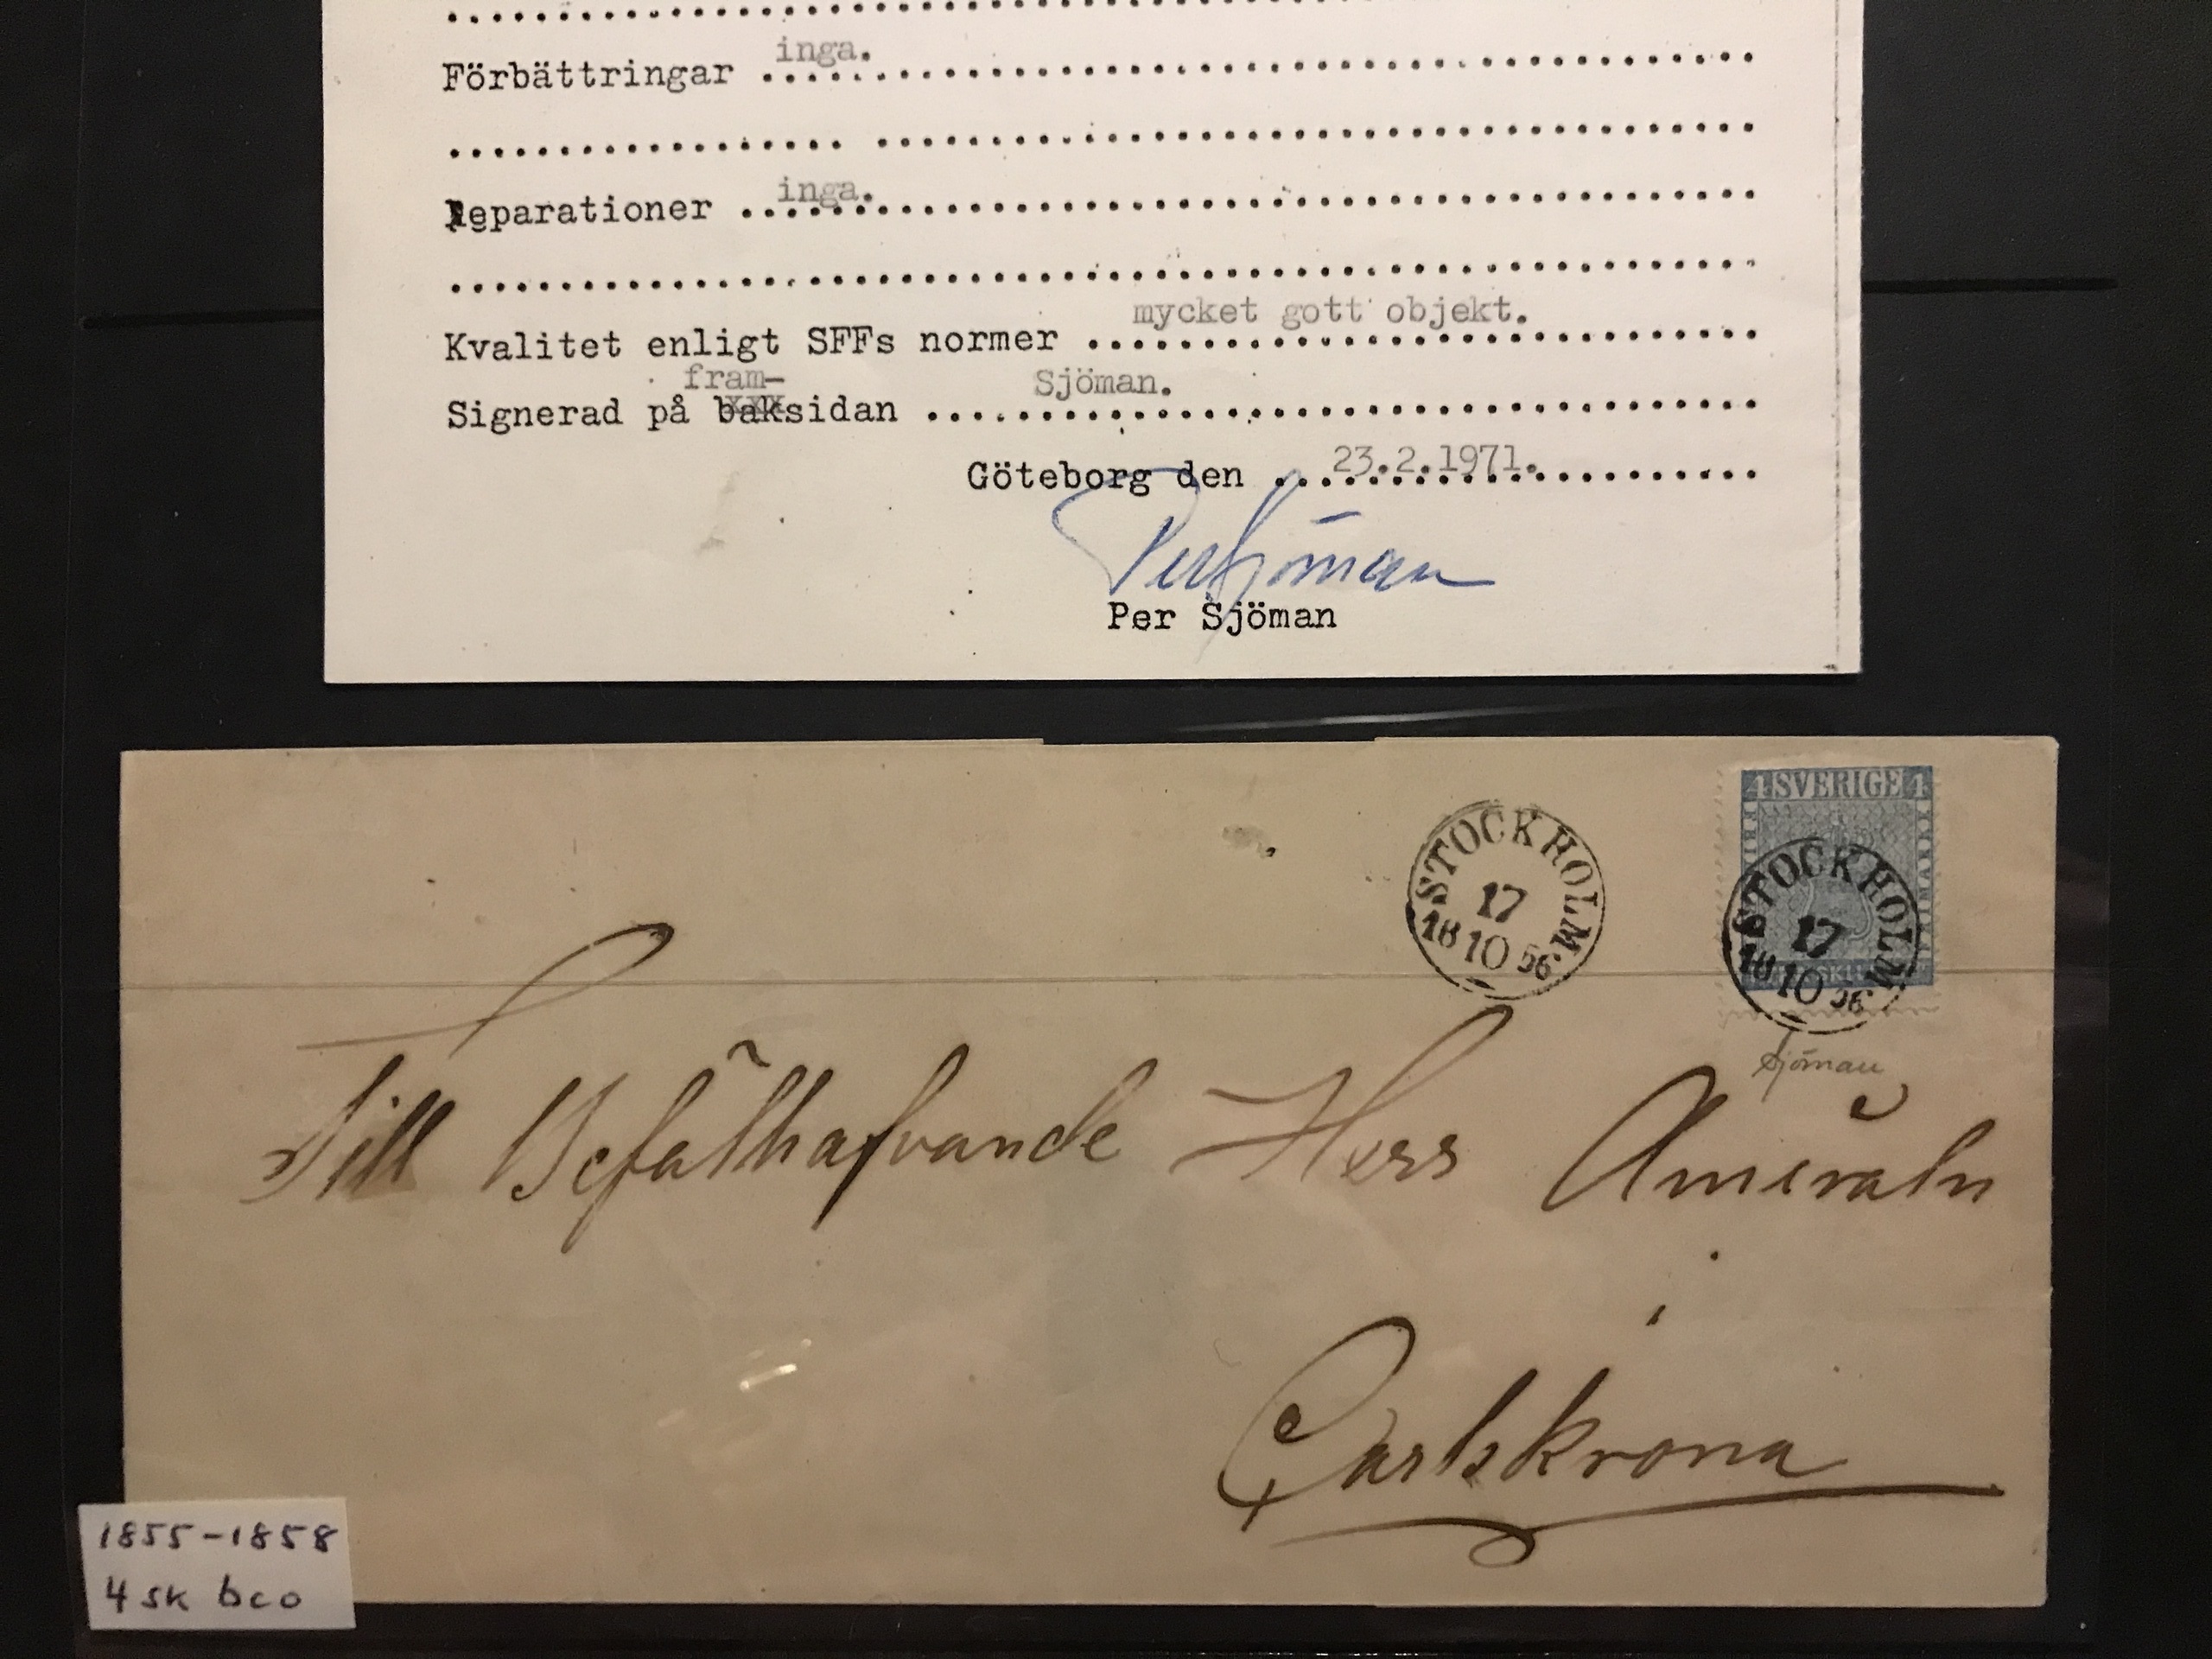 inga.
Förbättringar
inga.
Reparationer
mycket gott objekt.
Kvalitet enligt SFFs normer
fram- Sjöman.
Signerad på baksidan
xxx
23.2.1971.
Göteborg den
Per Sjöman
Per Sjöman
4 SVERIGE 4
STOCKHOLM
17
18 10 56.
STOCKHOLM
17
18 10 56.
Sjöman
Till Befälhafvande Herr Amiralen
i
Carlskrona
1855-1858
4 sk bco